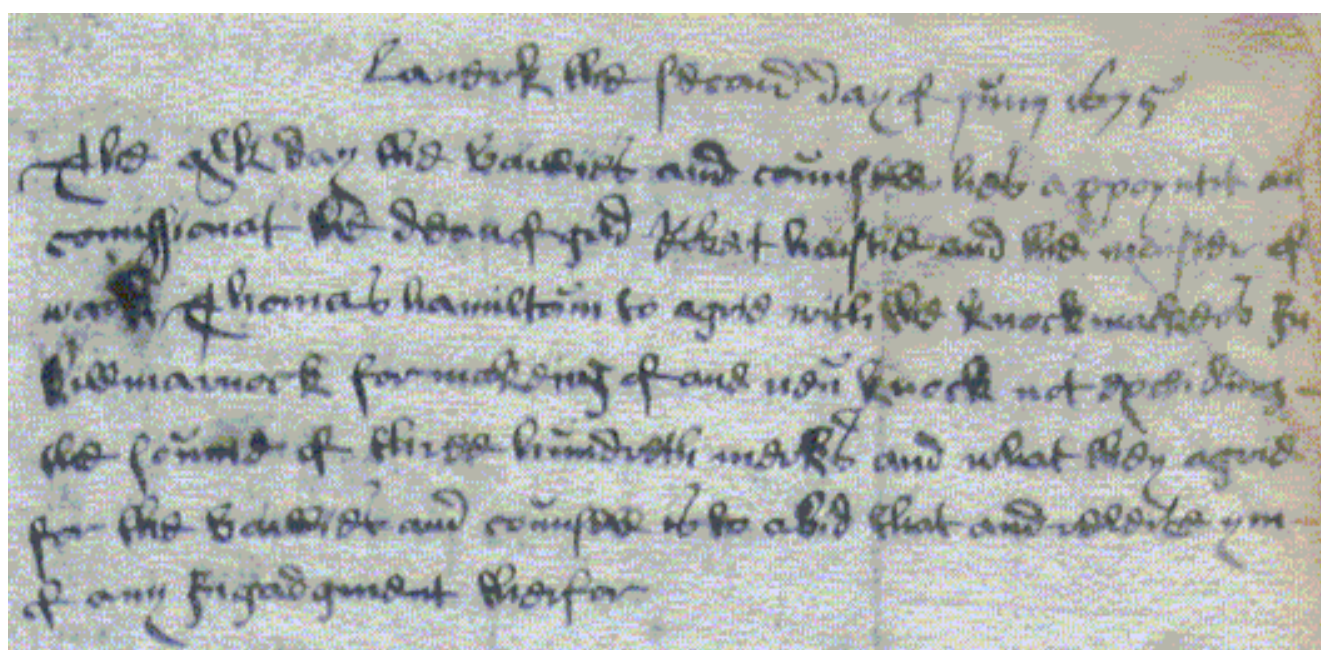 Lanerk the second day of Juny 1675
The qlk day the bailȝies and counsell hes appoyntit an
comissionat the dean of gild Robert hastie and the maister of
wark Thomas hamiltoun to agrie with the knock makers In
Killmarnock for makeing of ane new knock not exceiding
the soume of thrie hundreth merks and what they agrie
for the bailȝies and counsell is to abid that and releive ym
of any Ingadgment therfor